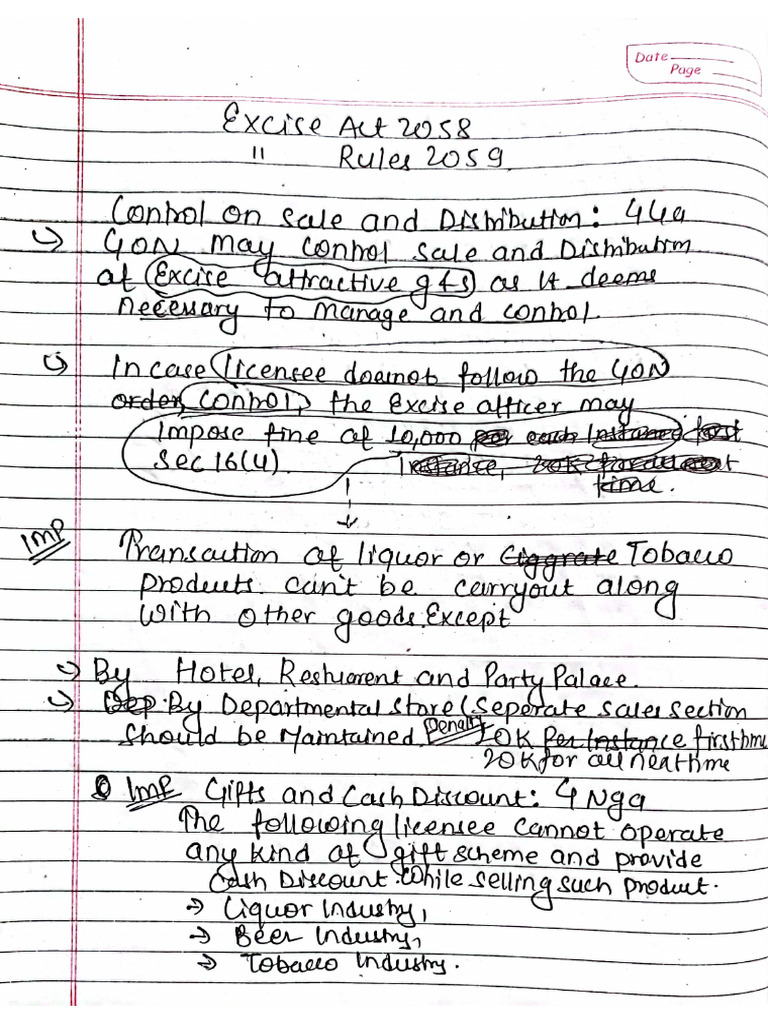 Date
Page
Excise Act 2058
" Rules 2059
Control on sale and Distribution: 44a
GON may control sale and Distribution
at Excise attractive g&s as it deems
necessary to manage and control.
In case licensee doesnot follow the GON
order, control, the Excise officer may
Impose fine of 10,000 per each Instance
Sec 16(4).
time.
Imp
Transaction of liquor or Ciggrate Tobacco
products can't be carryout along
with other goods. Except
By Hotel, Restuarent and Party Palace.
Dep. By Departmental Store (Seperate sales section
should be Maintained. Penalty 10K Per Instance first time
20K for all next time
Imp Gifts and Cash Discount: 4 Nga
The following licensee cannot operate
any kind of gift scheme and provide
Cash Discount while selling such product.
→ Liquor Industry,
→ Beer Industry,
→ Tobacco Industry.